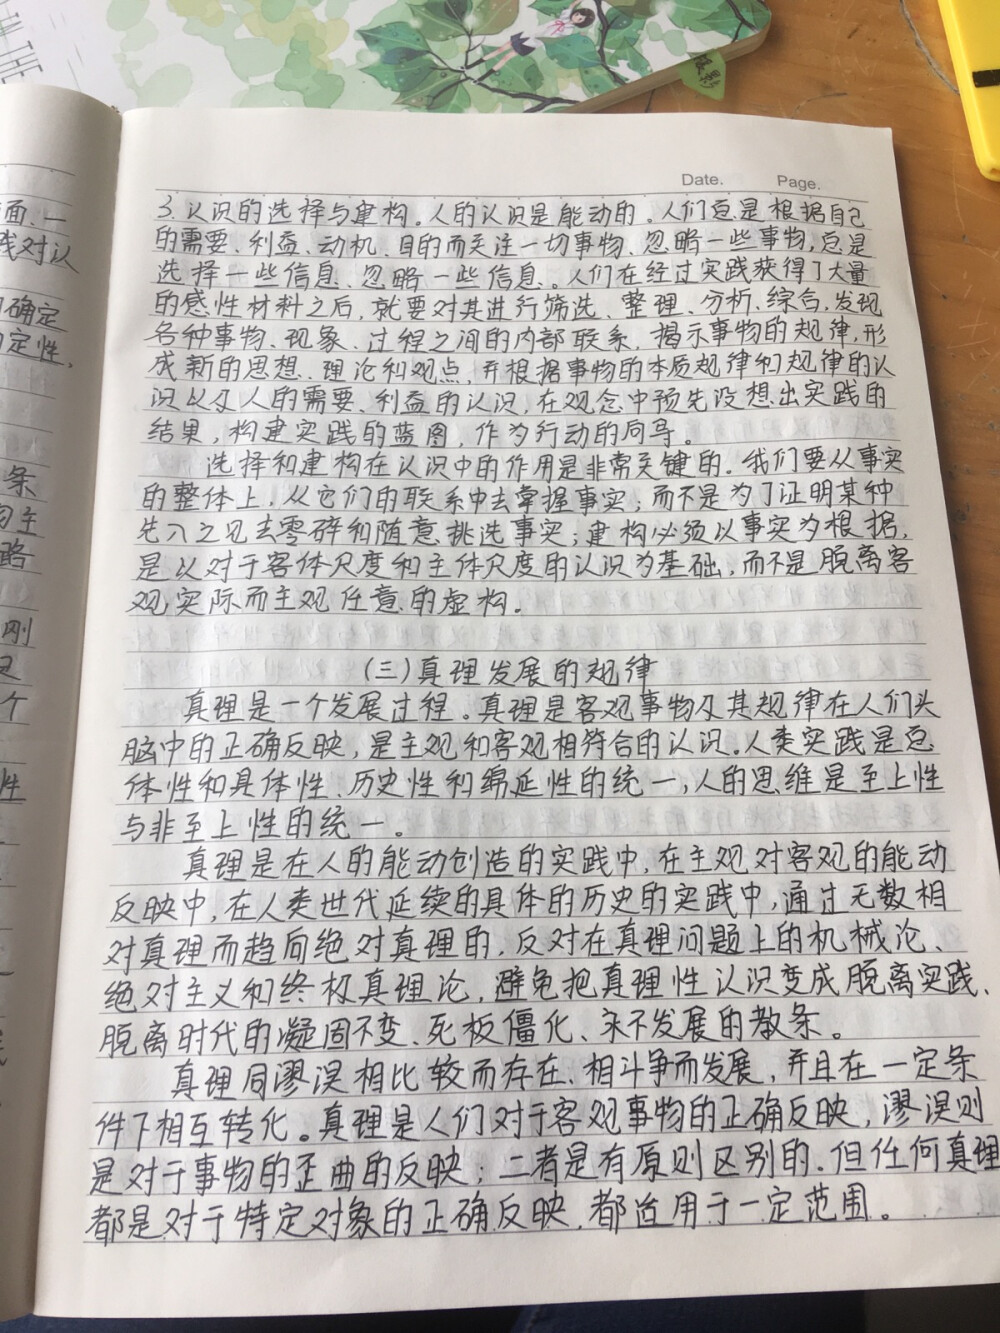 IN THE
Date. Page.
面、一
对认
确定
定性,
条
主
路
刚
个
性
3.认识的选择与建构。人的认识是能动的。人们总是根据自己
的需要、利益、动机、目的而关注一切事物、忽略一些事物,总是
选择一些信息、忽略一些信息。人们在经过实践获得了大量
的感性材料之后,就要对其进行筛选、整理、分析、综合,发现
各种事物、现象、过程之间的内部联系,揭示事物的规律,形
成新的思想、理论和观点,并根据事物的本质规律和规律的认
识以及人的需要、利益的认识,在观念中预先设想出实践的
结果,构建实践的蓝图,作为行动的向导。
选择和建构在认识中的作用是非常关键的。我们要从事实
的整体上,从它们的联系中去掌握事实;而不是为了证明某种
先入之见去零碎和随意挑选事实;建构必须以事实为根据,
是以对于客体尺度和主体尺度的认识为基础,而不是脱离客
观实际而主观任意的虚构。
(三)真理发展的规律
真理是一个发展过程。真理是客观事物及其规律在人们头
脑中的正确反映,是主观和客观相符合的认识。人类实践是总
体性和具体性、历史性和绵延性的统一,人的思维是至上性
与非至上性的统一。
真理是在人的能动创造的实践中,在主观对客观的能动
反映中,在人类世代延续的具体的历史的实践中,通过无数相
对真理而趋向绝对真理的,反对在真理问题上的机械论、
绝对主义和终极真理论,避免把真理性认识变成脱离实践、
脱离时代的凝固不变、死板僵化、永不发展的教条。
真理同谬误相比较而存在、相斗争而发展,并且在一定条
件下相互转化。真理是人们对于客观事物的正确反映,谬误则
是对于事物的歪曲的反映;二者是有原则区别的。但任何真理
都是对于特定对象的正确反映,都适用于一定范围。